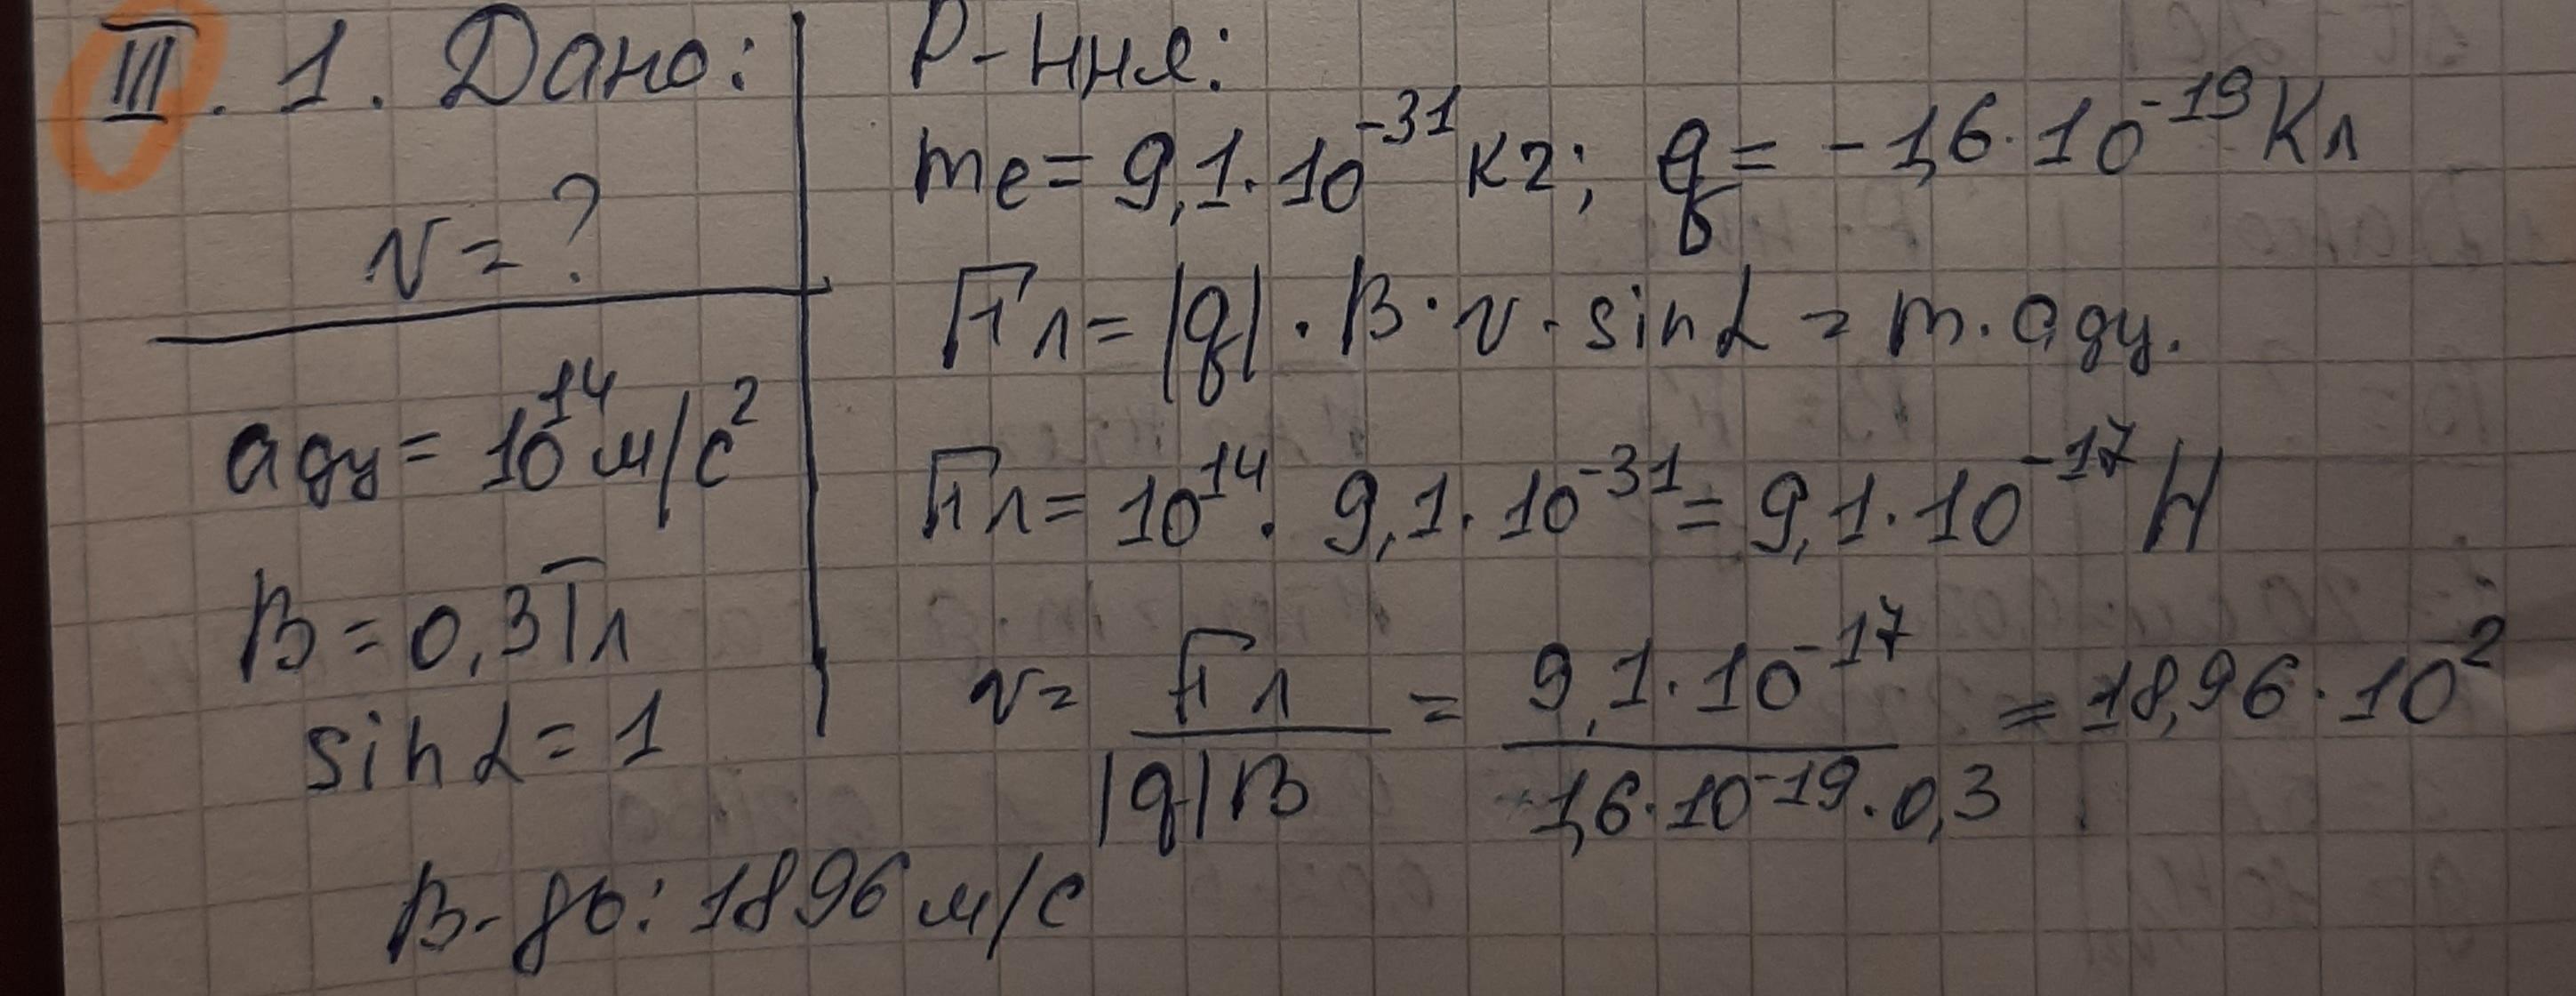 III. 1. Дано:
v = ?
aдц = 10^14 м/с^2
B = 0,3 Тл
sin α = 1
Р-ння:
me = 9,1 · 10^-31 кг; q = -1,6 · 10^-19 Кл
Fл = |q| · B · v · sin α = m · aдц.
Fл = 10^14 · 9,1 · 10^-31 = 9,1 · 10^-17 Н
v = Fл / |q|B = 9,1 · 10^-17 / 1,6 · 10^-19 · 0,3 = 18,96 · 10^2
В-дь: 1896 м/с